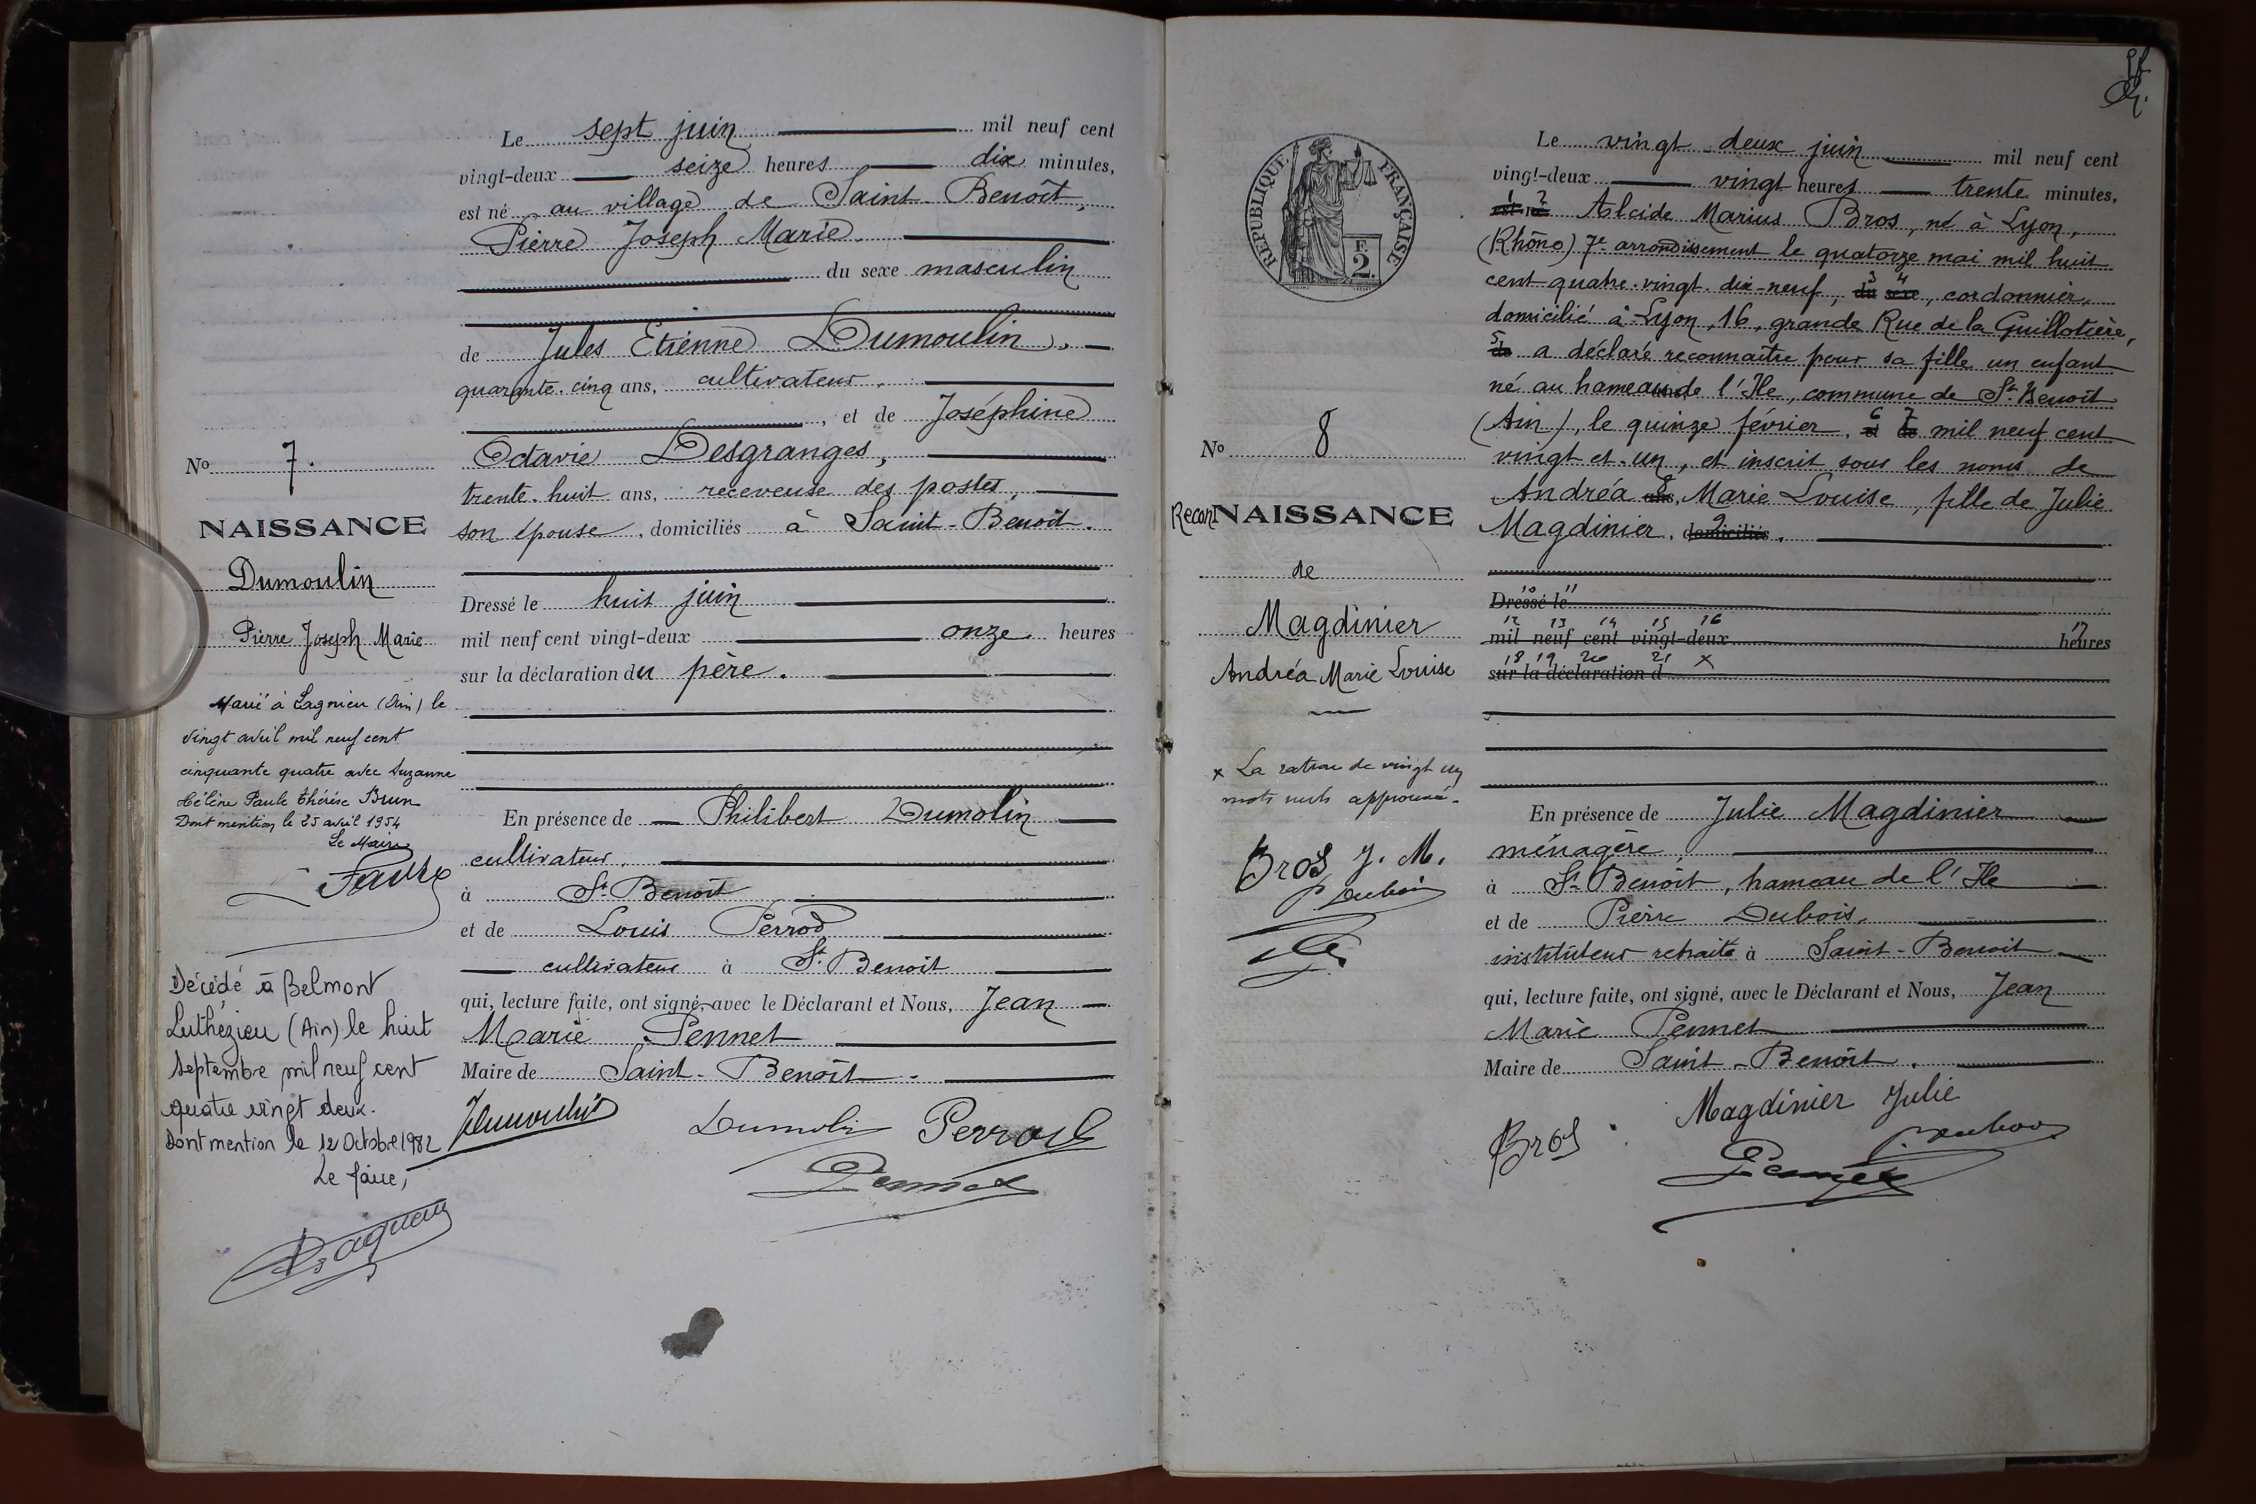 Le sept juin mil neuf cent
vingt-deux seize heures dix minutes,
est né au village de Saint-Benoît,
Pierre Joseph Marie
du sexe masculin
de Jules Etienne Dumoulin,
quarante-cinq ans, cultivateur,
, et de Joséphine
Octavie Desgranges,
trente-huit ans, receveuse des postes,
son épouse, domiciliés à Saint-Benoît.
Dressé le huit juin
mil neuf cent vingt-deux onze heures
sur la déclaration du père.
En présence de Philibert Dumolin
cultivateur
à St Benoît
et de Louis Perrod
cultivateur à St Benoit
qui, lecture faite, ont signé, avec le Déclarant et Nous, Jean
Marie Pennet
Maire de Saint-Benoît.
JDumoulin
Dumolin Perrod
Pennet
No 7.
NAISSANCE
Dumoulin
Pierre Joseph Marie
Marié à Lagnieu (Ain) le
vingt avril mil neuf cent
cinquante quatre avec Suzanne
Hélène Paule Thérèse Brun
Dont mention le 25 avril 1954
Le Maire
Favre
Décédé à Belmont
Luthézieu (Ain) le huit
Septembre mil neuf cent
quatre vingt deux.
Dont mention le 12 Octobre 1982
Le Maire,
RÉPUBLIQUE FRANÇAISE
F.
2
No 8
ReconNAISSANCE
de
Magdinier
Andréa Marie Louise
x La rature de vingt un
mots nuls approuvé.
Bros J. M.
P Dubois
Le vingt-deux juin mil neuf cent
vingt-deux vingt heures trente minutes,
1 2
est né Alcide Marius Bros, né à Lyon,
(Rhône) 7e arrondissement le quatorze mai mil huit
cent quatre-vingt-dix-neuf, 3 4 du sexe, cordonnier,
domicilié à Lyon, 16, grande Rue de la Guillotière,
5
de a déclaré reconnaître pour sa fille un enfant
né au hameau de l'Ile, commune de St-Benoît
(Ain), le quinze février, 6 7 et de mil neuf cent
vingt et un, et inscrit sous les noms de
Andréa 8 ans, Marie Louise, fille de Julie
Magdinier, 9 domiciliés.
10 11
Dressé le
12 13 14 15 16
mil neuf cent vingt-deux 17 heures
18 19 20 21 x
sur la déclaration d
En présence de Julie Magdinier
ménagère,
à St Benoît, hameau de l'Ile
et de Pierre Dubois,
instituteur retraité à Saint-Benoit
qui, lecture faite, ont signé, avec le Déclarant et Nous, Jean
Marie Pennet
Maire de Saint-Benoît.
Magdinier Julie
Bros P. Dubois
Pennet